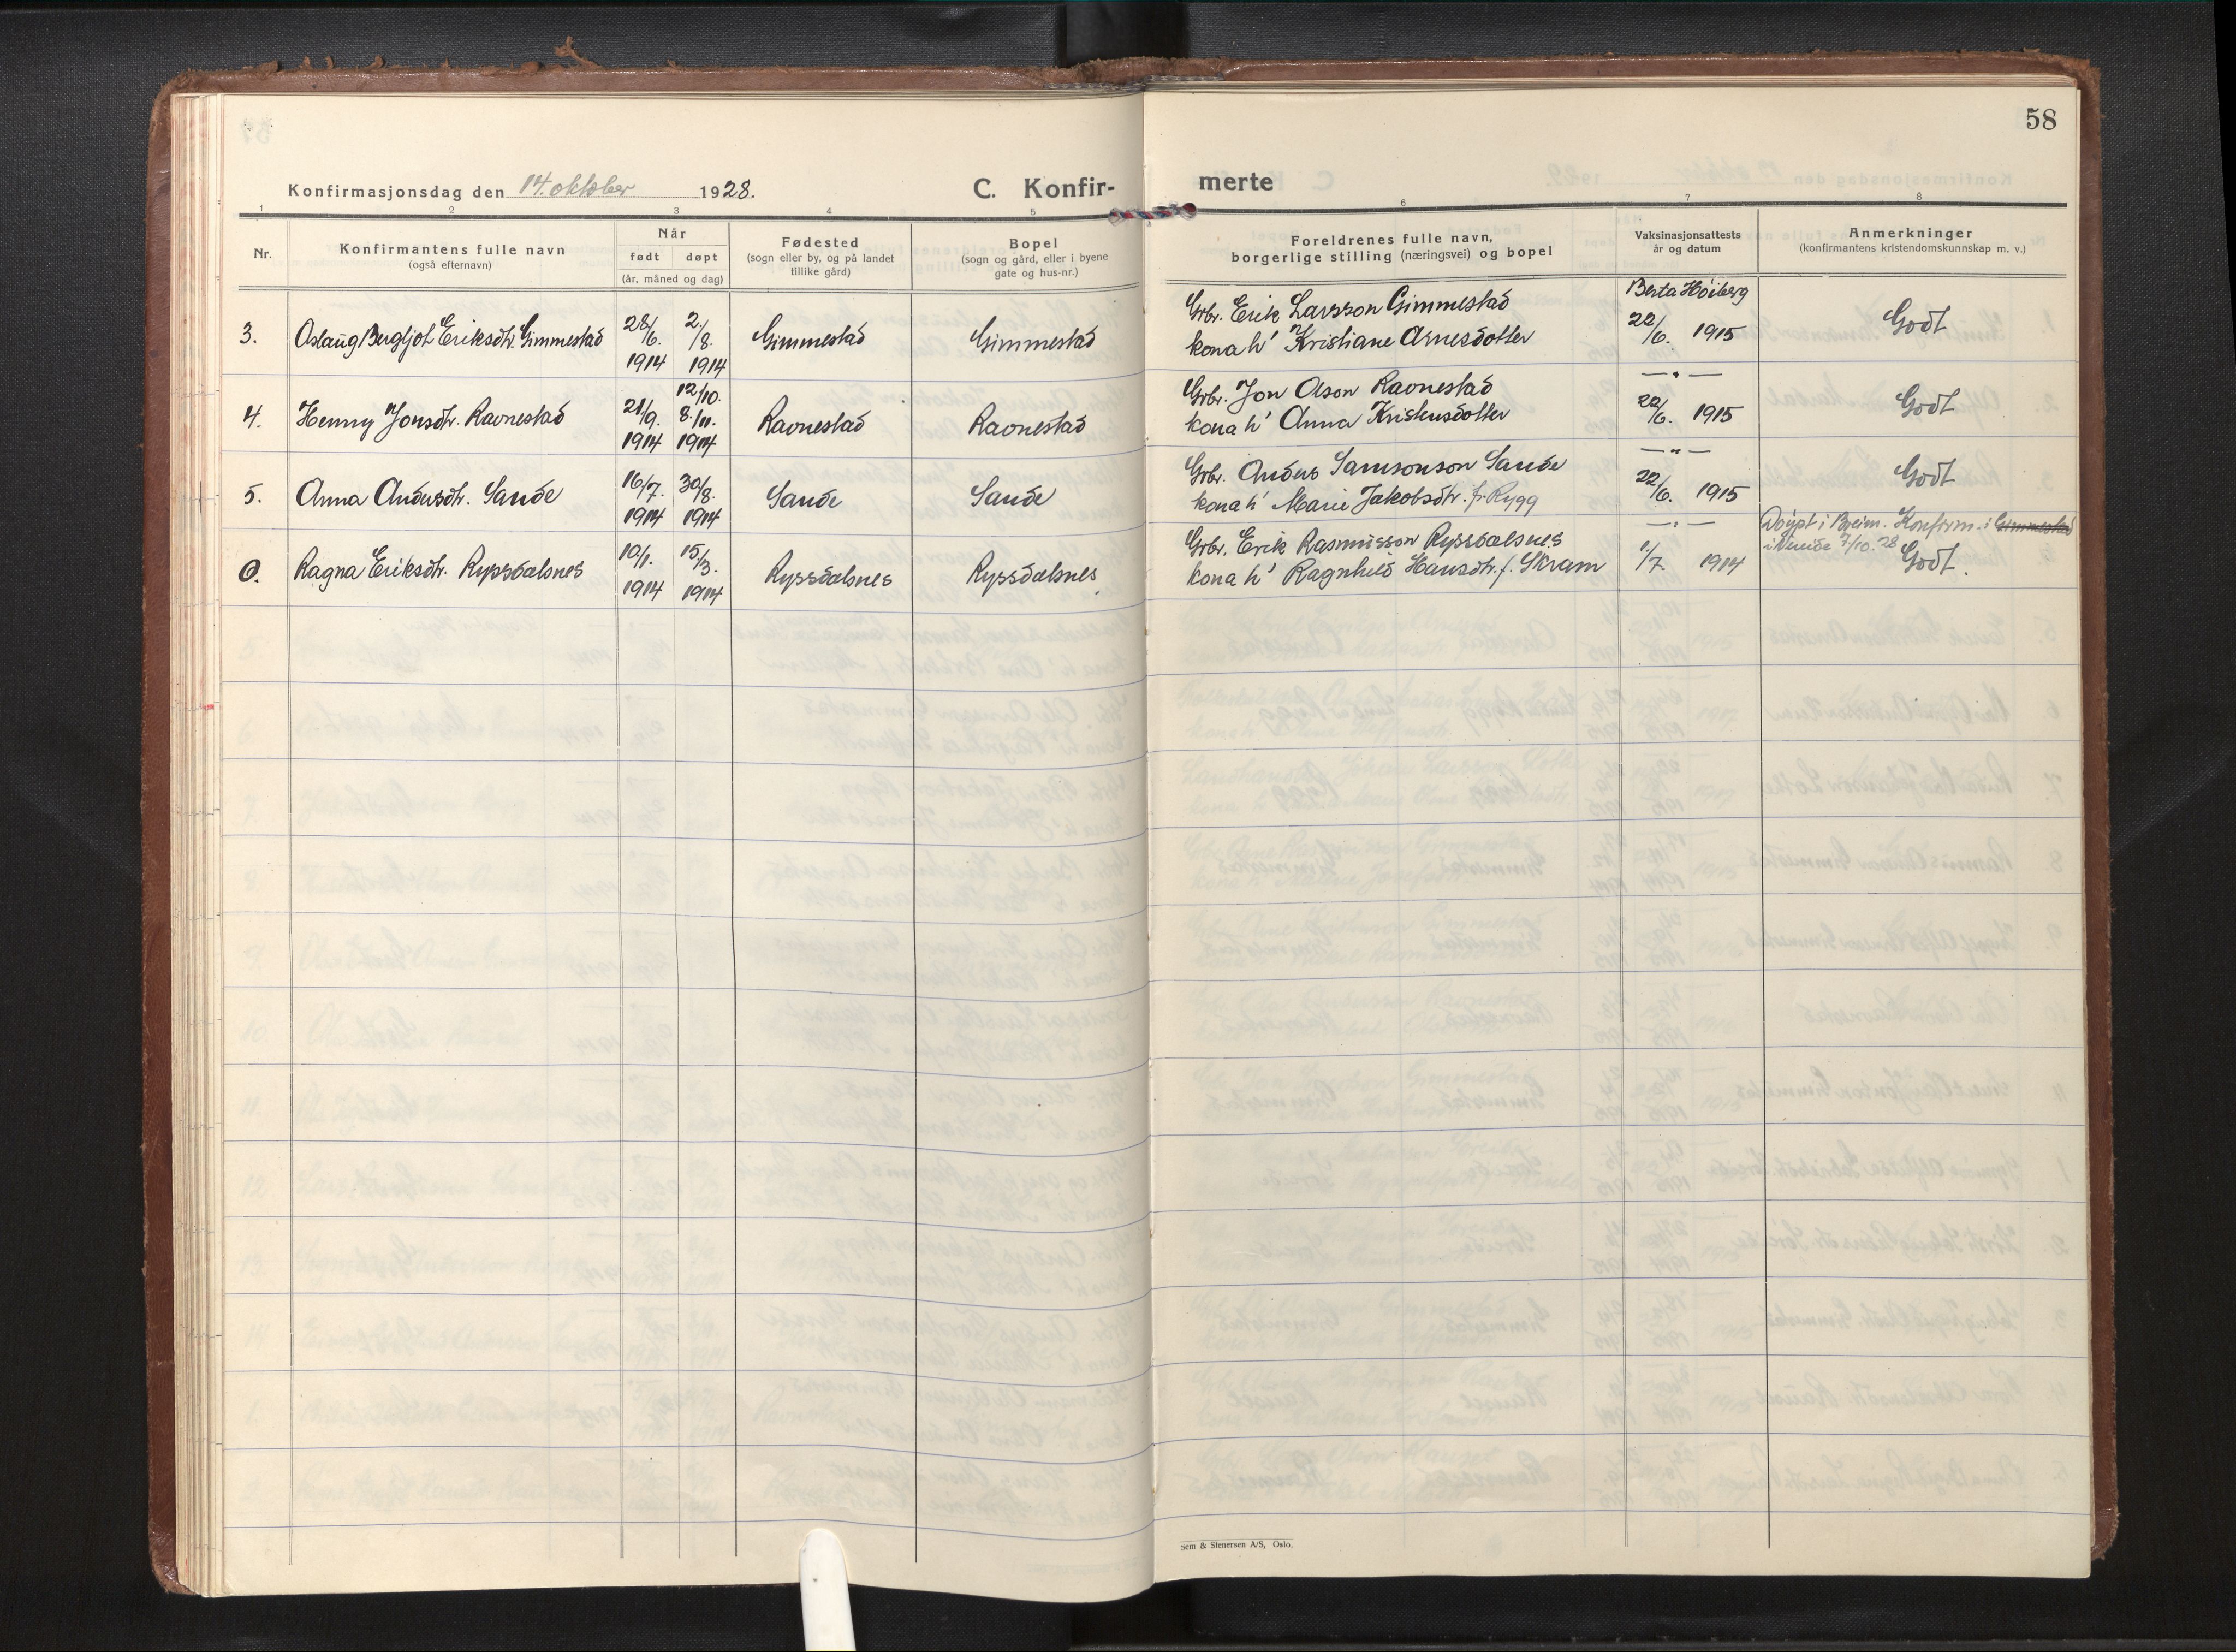 58
Konfirmasjonsdag den 14. oktober 1928. C. Konfir-merte
1 2 3 4 5 6 7 8
Nr.
Konfirmantens fulle navn
(også efternavn)
Når
født døpt
(år, måned og dag)
Fødested
(sogn eller by, og på landet
tillike gård)
Bopel
(sogn og gård, eller i byene
gate og hus-nr.)
Foreldrenes fulle navn,
borgerlige stilling (næringsvei) og bopel
Vaksinasjonsattests
år og datum
Anmerkninger
(konfirmantens kristendomskunnskap m. v.)
3. Aslaug Bergljot Eriksdtr. Gimmestad
28/6. 1914
2./8. 1914
Gimmestad
Gimmestad
Grbr. Erik Larsson Gimmestad
kona h' Kristiane Arnesdotter
Berta Höiberg
22/6. 1915
Godt
4. Henny Jonsdtr. Ravnestad
21/9. 1914
12/10. 8./11. 1914
Ravnestad
Ravnestad
Grbr. Jon Olson Ravnestad
kona h' Anna Kristensdotter
—"—
22/6. 1915
Godt
5. Anna Andersdtr. Sande
16/7. 1914
30/8. 1914
Sande
Sande
Grbr. Anders Samsonson Sande
kona h' Marie Jakobsdtr. f. Rygg
—"—
22/6. 1915
Godt
0. Ragna Eriksdtr. Ryssdalsnes
10/1. 1914
15/3. 1914
Ryssdalsnes
Ryssdalsnes
Grbr. Erik Rasmusson Ryssdalsnes
kona h' Ragnhild Hansdtr. f. Skram
—"—
1./7. 1914
Döypt i Breim. Konfirm. i Gimmestad
i Vereide 7/10. 28
Godt.
Sem & Stenersen A/S, Oslo.